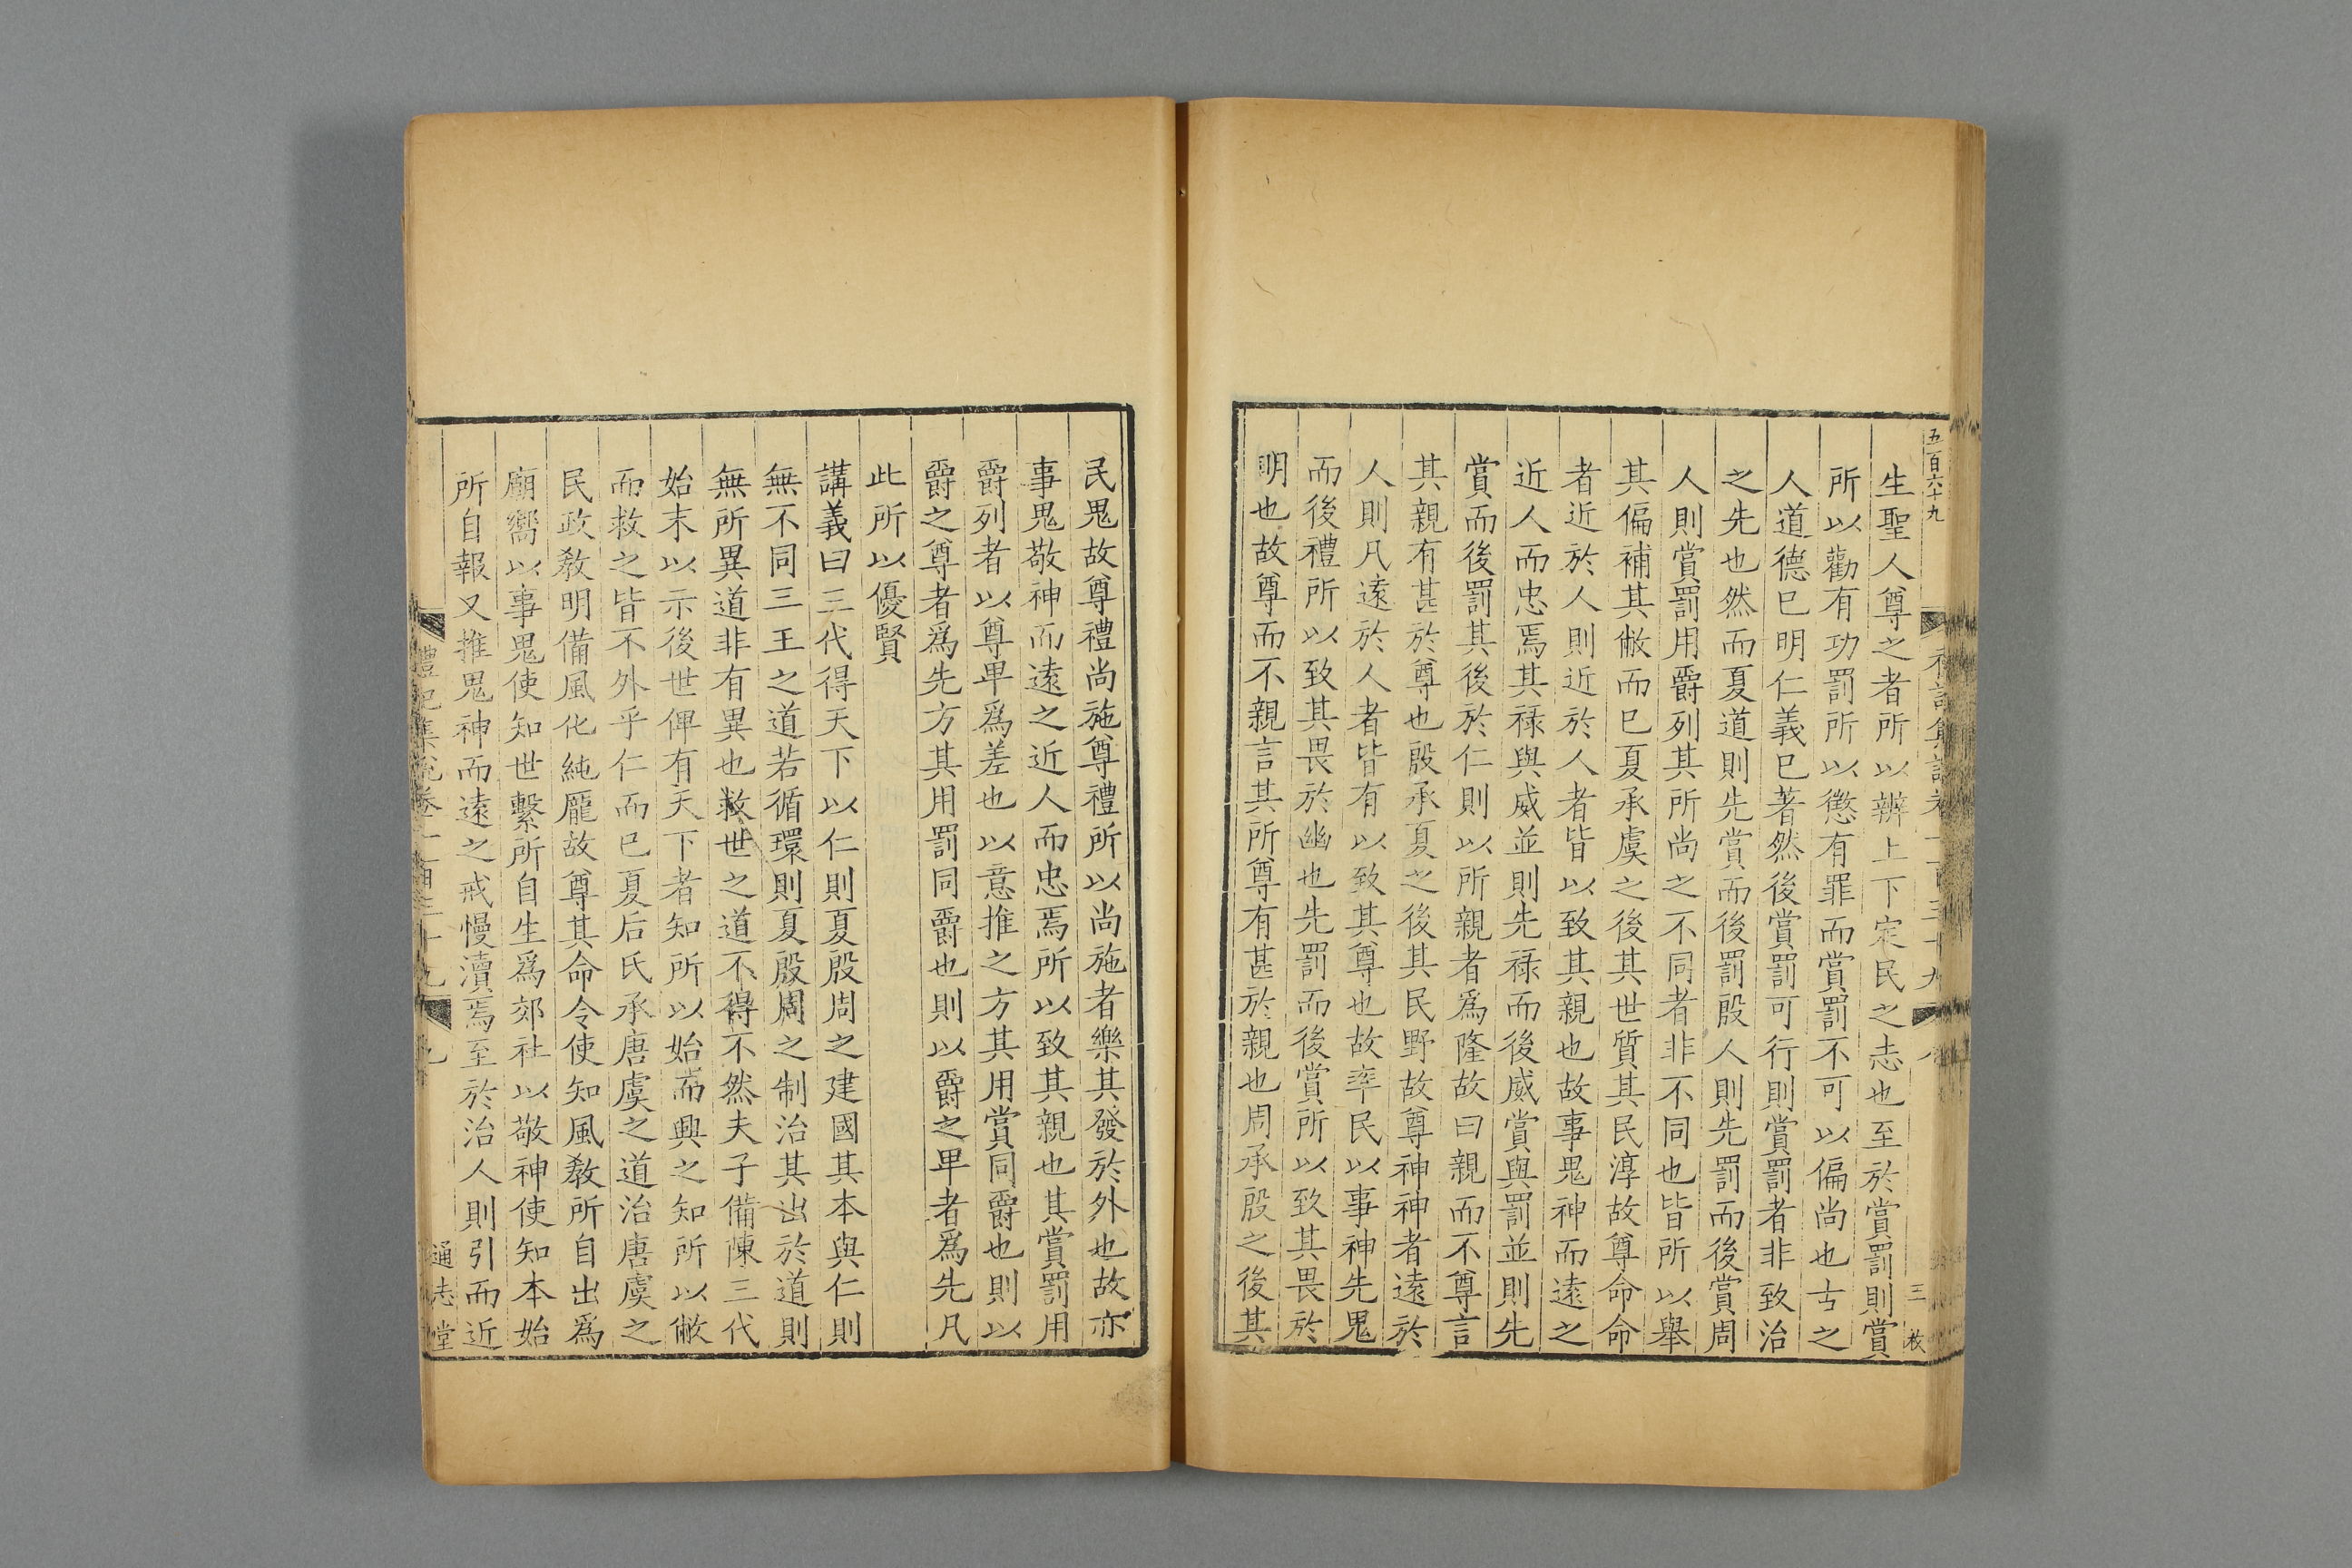 五百六十九
生聖人尊之者所以辨上下定民之志也至於賞罰則賞
所以勸有功罰所以懲有罪而賞罰不可以偏尚也古之
人道德已明仁義已著然後賞罰可行則賞罰者非致治
之先也然而夏道則先賞而後罰殷人則先罰而後賞周
人則賞罰用爵列其所尚之不同者非不同也皆所以舉
其偏補其敝而已夏承虞之後其世質其民淳故尊命命
者近於人則近於人者皆以致其親也故事鬼神而遠之
近人而忠焉其祿與威並則先祿而後威賞與罰並則先
賞而後罰其後於仁則以所親者為隆故曰親而不尊言
其親有甚於尊也殷承夏之後其民野故尊神神者遠於
人則凡遠於人者皆有以致其尊也故率民以事神先鬼
而後禮所以致其畏於幽也先罰而後賞所以致其畏於
明也故尊而不親言其所尊有甚於親也周承殷之後其
民鬼故尊禮尚施尊禮所以尚施者樂其發於外也故亦
事鬼敬神而遠之近人而忠焉所以致其親也其賞罰用
爵列者以尊卑爲差也以意推之方其用賞同爵也則以
爵之尊者爲先方其用罰同爵也則以爵之卑者爲先凡
此所以優賢
講義曰三代得天下以仁則夏殷周之建國其本與仁則
無不同三王之道若循環則夏殷周之制治其出於道則
無所異道非有異也救世之道不得不然夫子備陳三代
始末以示後世俾有天下者知所以始而興之知所以敝
而救之皆不外乎仁而已夏后氏承唐虞之道治唐虞之
民政敎明備風化純龎故尊其命令使知風敎所自出爲
廟嚮以事鬼使知世繫所自生爲郊社以敬神使知本始
所自報又推鬼神而遠之戒慢瀆焉至於治人則引而近
禮記集說卷一百三十九
九
通志堂